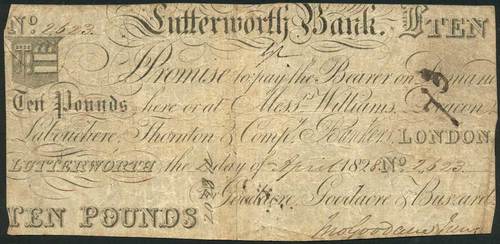 No. 2523 Lutterworth Bank. £TEN
I Promise to pay the Bearer on Demand
Ten Pounds here or at Messrs Williams, Deacon
Labouchere, Thornton & Compy. Bankers, LONDON
LUTTERWORTH the day of April 1828 No. 2523
Goodacre, Goodacre & Buszard
TEN POUNDS